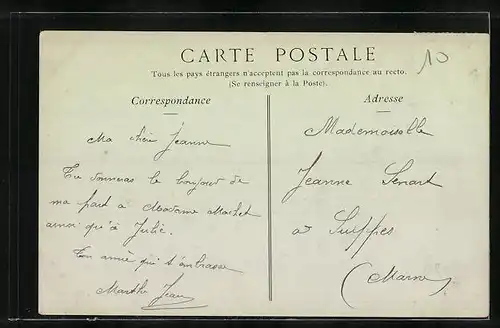 CARTE POSTALE
10
Tous les pays étrangers n'acceptent pas la correspondance au recto.
(Se renseigner à la Poste).
Correspondance
Ma chère Jeanne
Tu donneras le bonjour de
ma part à Madame Machet
ainsi qu'à Julie.
Ton amie qui t'embrasse
Marthe Jean
Adresse
Mademoiselle
Jeanne Senart
à Suippes
(Marne)